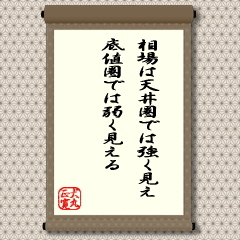 相場は天井圏では強く見え
底値圏では弱く見える